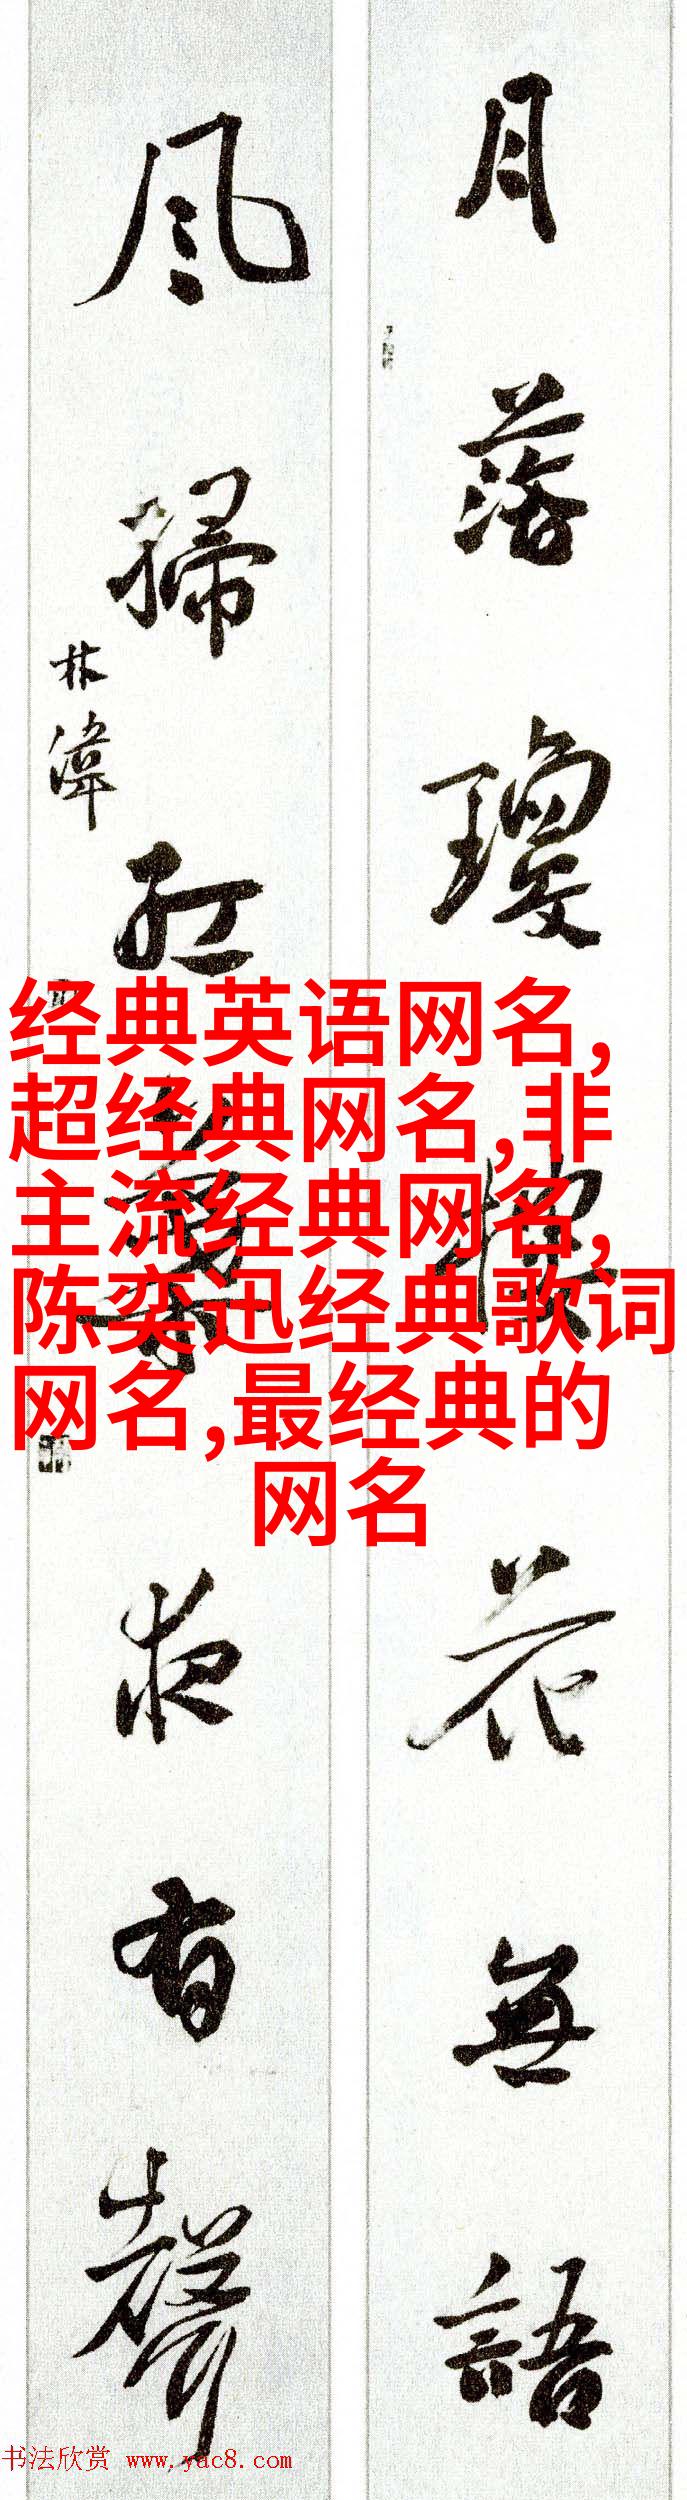 月落瓊樓花無語
风掃紅葉夜有聲
林
经典英语网名,
超经典网名,非
主流经典网名,
陈奕迅经典歌词
网名,最经典的
网名
书法欣赏 www.yac8.com